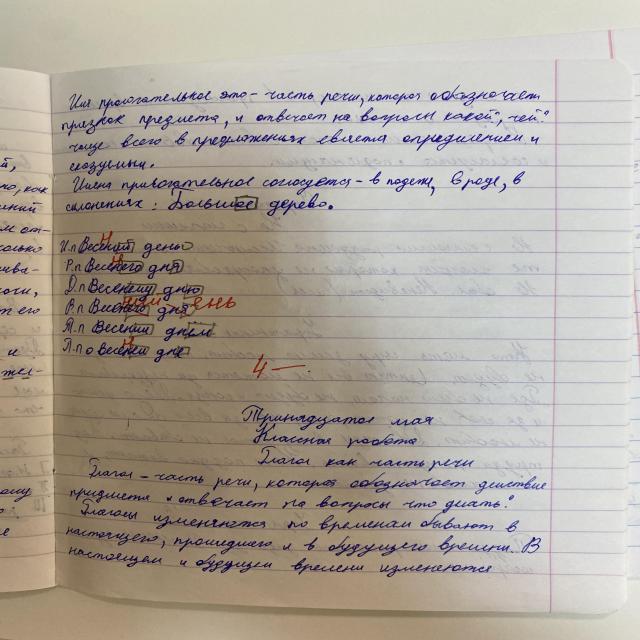 Имя прилогательное это - часть речи, которая обазначает
признак предмета, и отвечает на вопросы какой?, чей?
чаще всего в предложениях евляется определением и
сказуемым.
Имена прилогательное согласуется - в падеже, в роде, в
склонениях: Большое дерево.
И.п Весений день
Р.п Весенего дня
Д.п Весенему дню
В.п Весенего дня
ний ень
Т.п Весеним днём
П.п о Весенем дне
4 -
Тринадцатое мая
Классная работа
Глагол как часть речи
Глагол - часть речи, которая обозначает действие
придмета и отвечает на вопросы что делать?
Глаголы изменяются по временам бывают в
настоящего, прошедшего и в будущего времени. В
настоящем и будущем времени изменяются
й,
но, как
от-
олько
и
ому
е